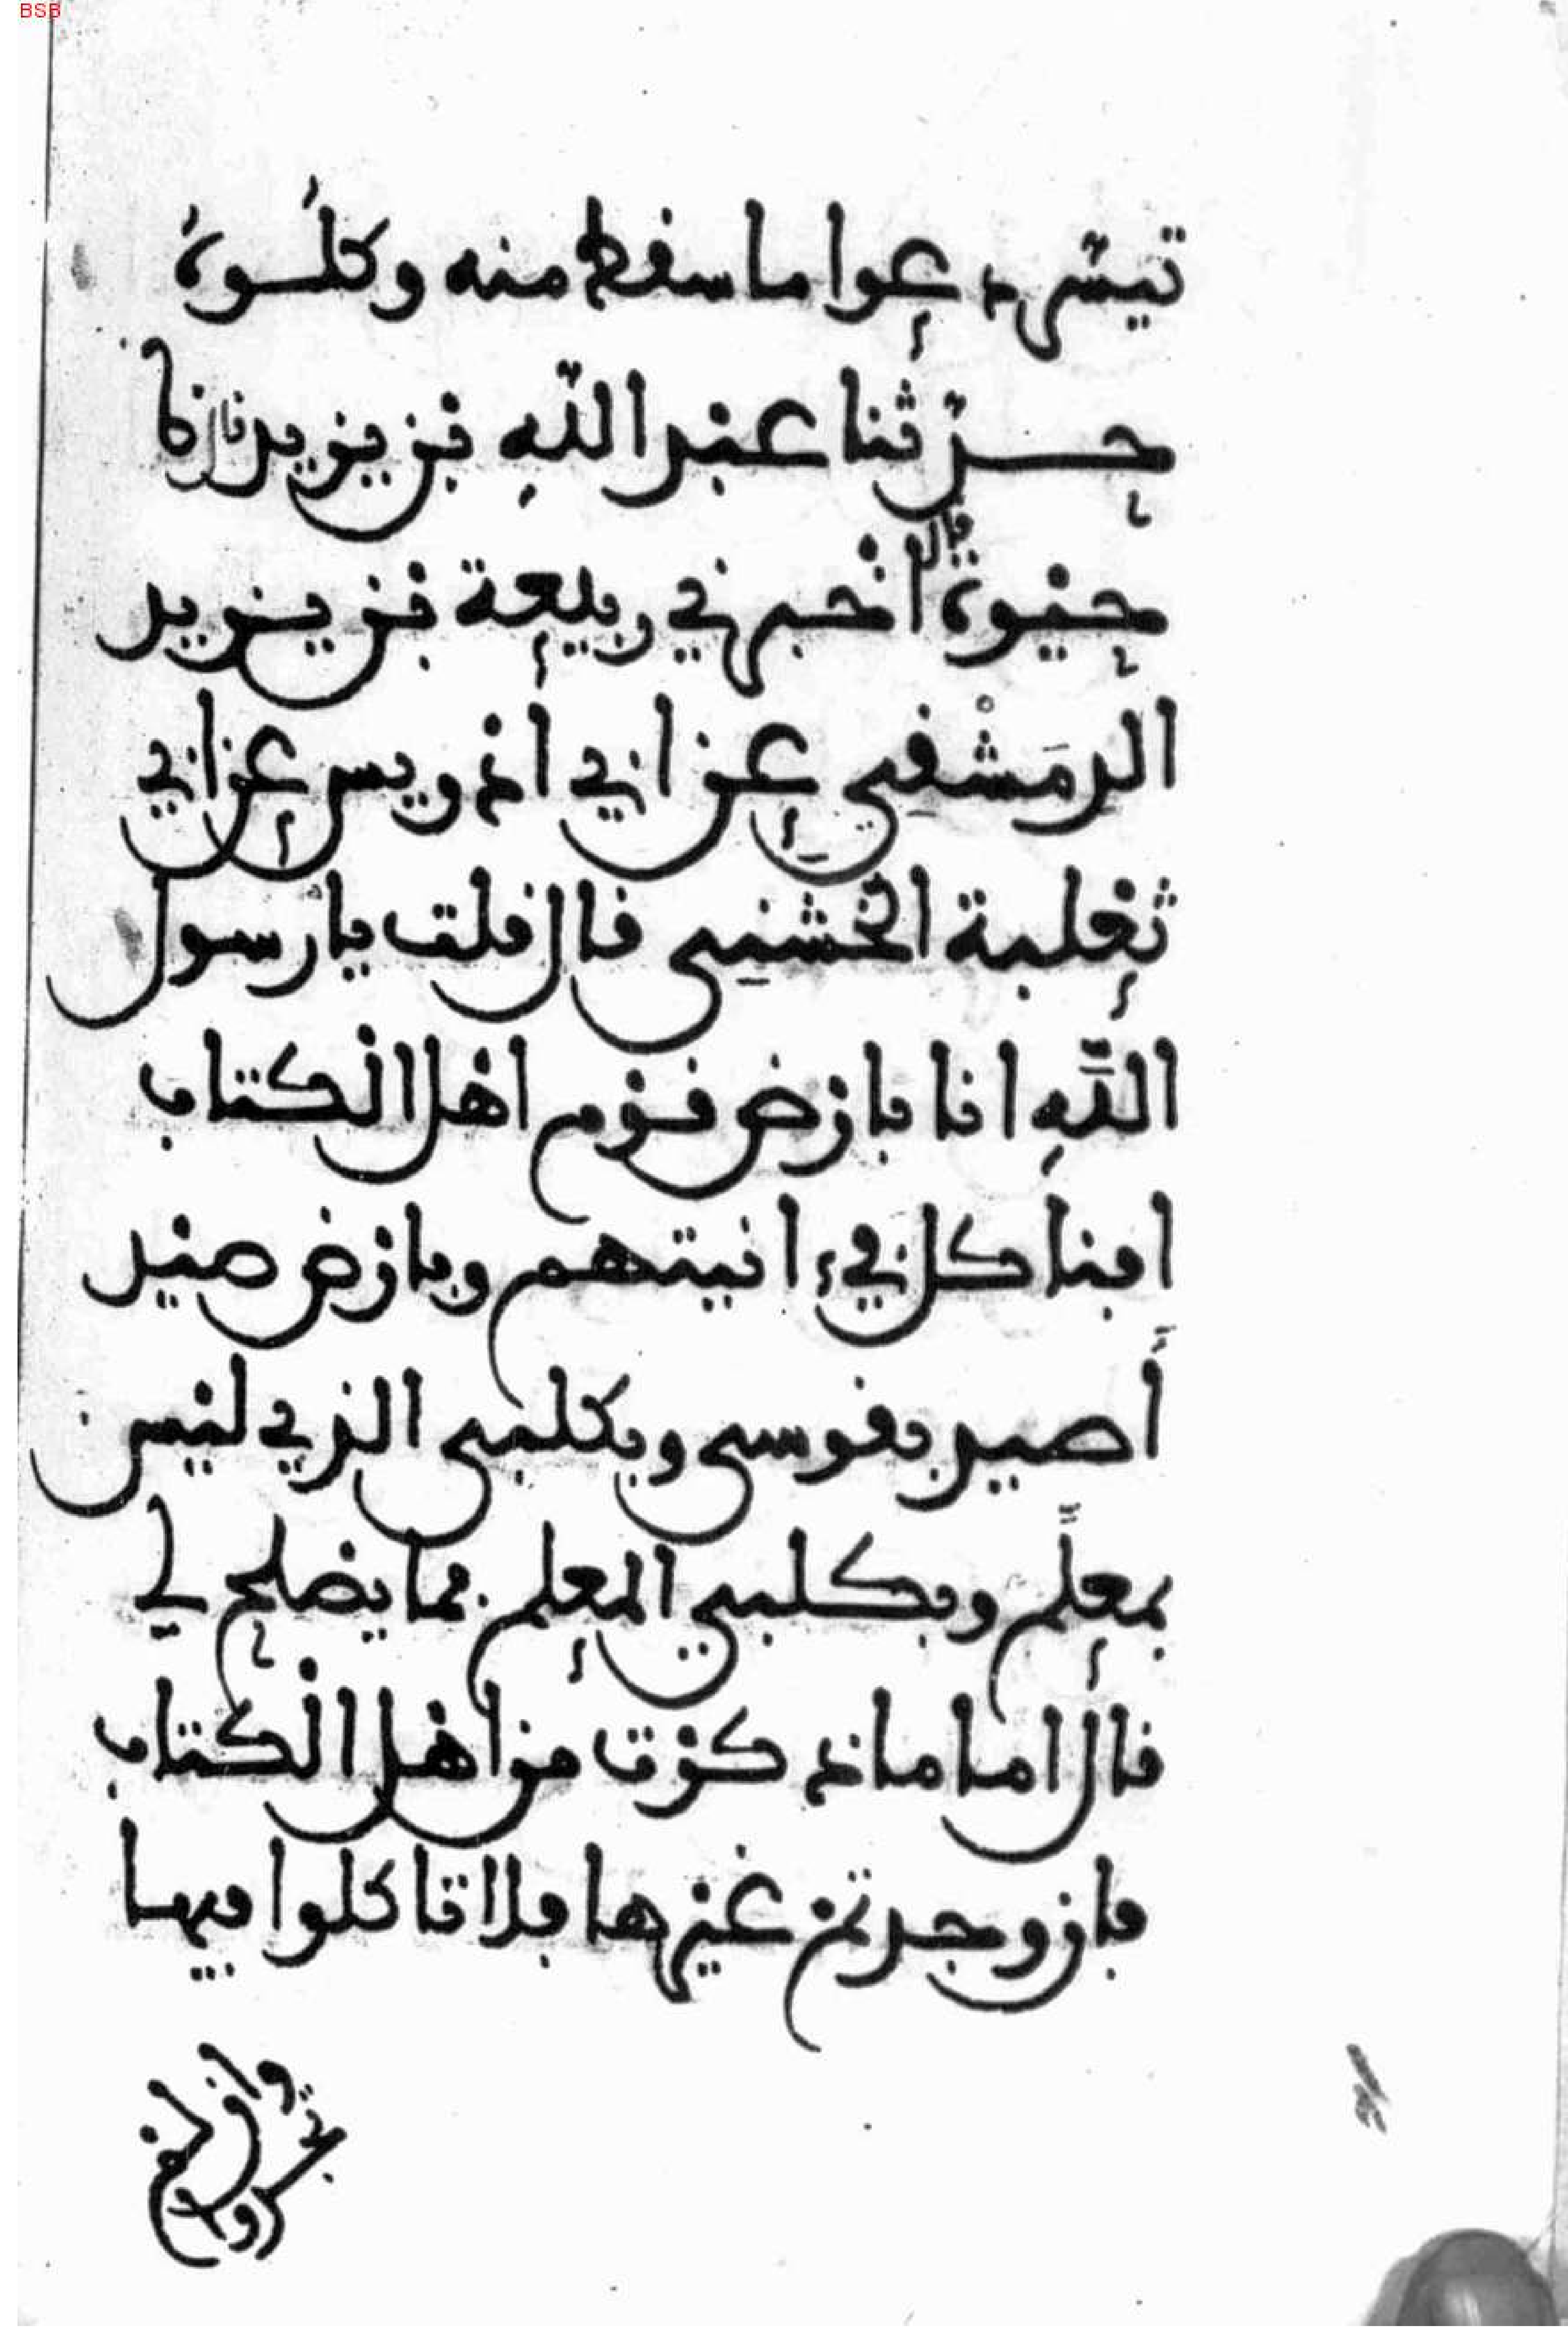 BSB
تيسّر دعوا ما سقط منه وكلُوهُ
حدّثنا عبد اللّه بن يزيد نا
حيوة قال اخبرني ربيعة بن يزيد
الدمَشْقِي عن ابي اذريس عن ابي
ثعلبة الخشنِي قال قلت يا رسول
اللَّهِ انا بارض قوم اهل الكتاب
افناكل في ءانيتهم وبارض صيد
أَصيد بقوسي وبكلبي الذي ليس
بمعلَّم وبكلبي المعلم فما يصلح لي
قال اما ما ذكرت من اهل الكتاب
فان وجدتم غيرها فلا تاكلوا فيها
وان لم تجدوا